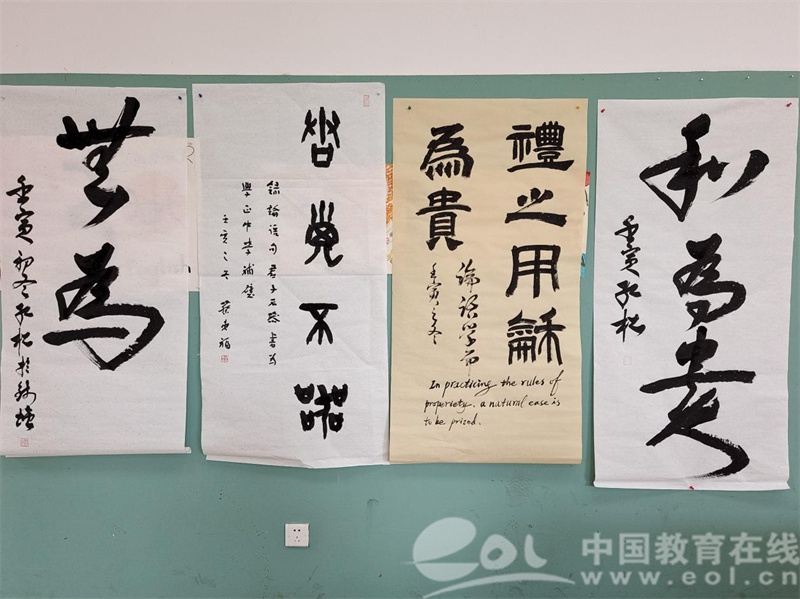 無為
壬寅初冬
君子不器
論語句君子不器書為
學正中學補壁
壬寅之冬
禮之用龢
為貴
論語學而
壬寅之冬
In practicing the rules of
properiety, a natural ease is
to be prized.
和為貴
壬寅
eol 中国教育在线
www.eol.cn